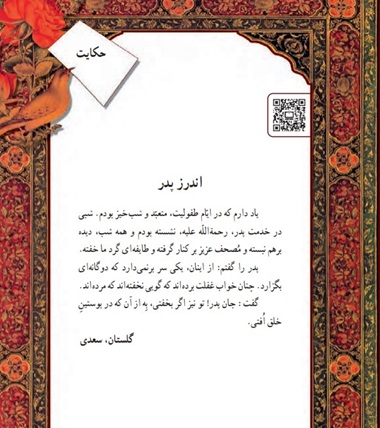 حکایت
اندرز پدر
یاد دارم که در ایّام طفولیت، متعبّد و شب‌خیز بودم. شبی
در خدمت پدر، رحمةاللّه علیه، نشسته بودم و همه شب، دیده
برهم نبسته و مُصحف عزیز بر کنار گرفته و طایفه‌ای گرد ما خفته.
پدر را گفتم: از اینان، یکی سر برنمی‌دارد که دوگانه‌ای
بگزارد. چنان خواب غفلت برده‌اند که گویی نخفته‌اند که مرده‌اند.
گفت : جان پدر! تو نیز اگر بخفتی، بِه از آن که در پوستین
خلق اُفتی.
گلستان، سعدی